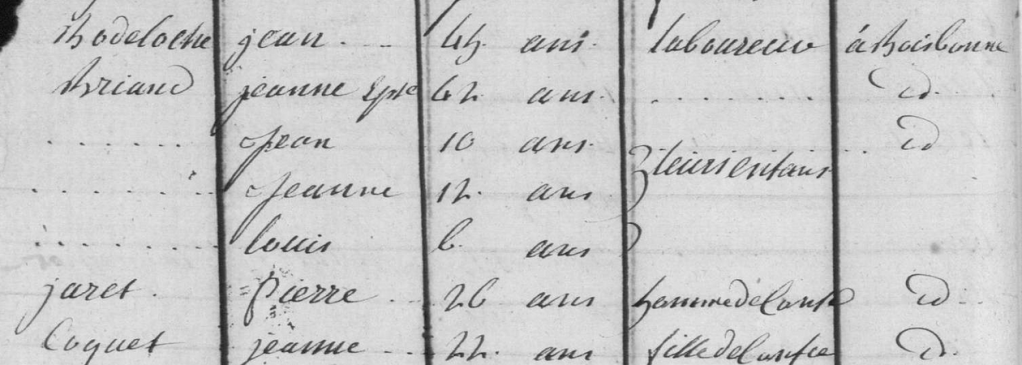 Rodeloche jean 45 ans laboureur à boisbonne
Briand jeanne Epse 42 ans id
Jean 10 ans id
leurs enfans
Jeanne 12 ans
louis 6 ans
jaret pierre 26 ans homme de confce id
Coquet jeanne 22 ans fille de confce id